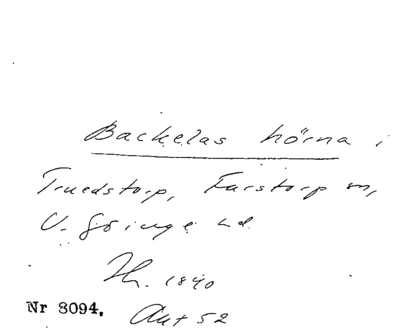 Backelas hörna i
Truedstorp, Farstorp sn,
V. Göinge hd.
Th. 1840
Nr 8094. Akt 52